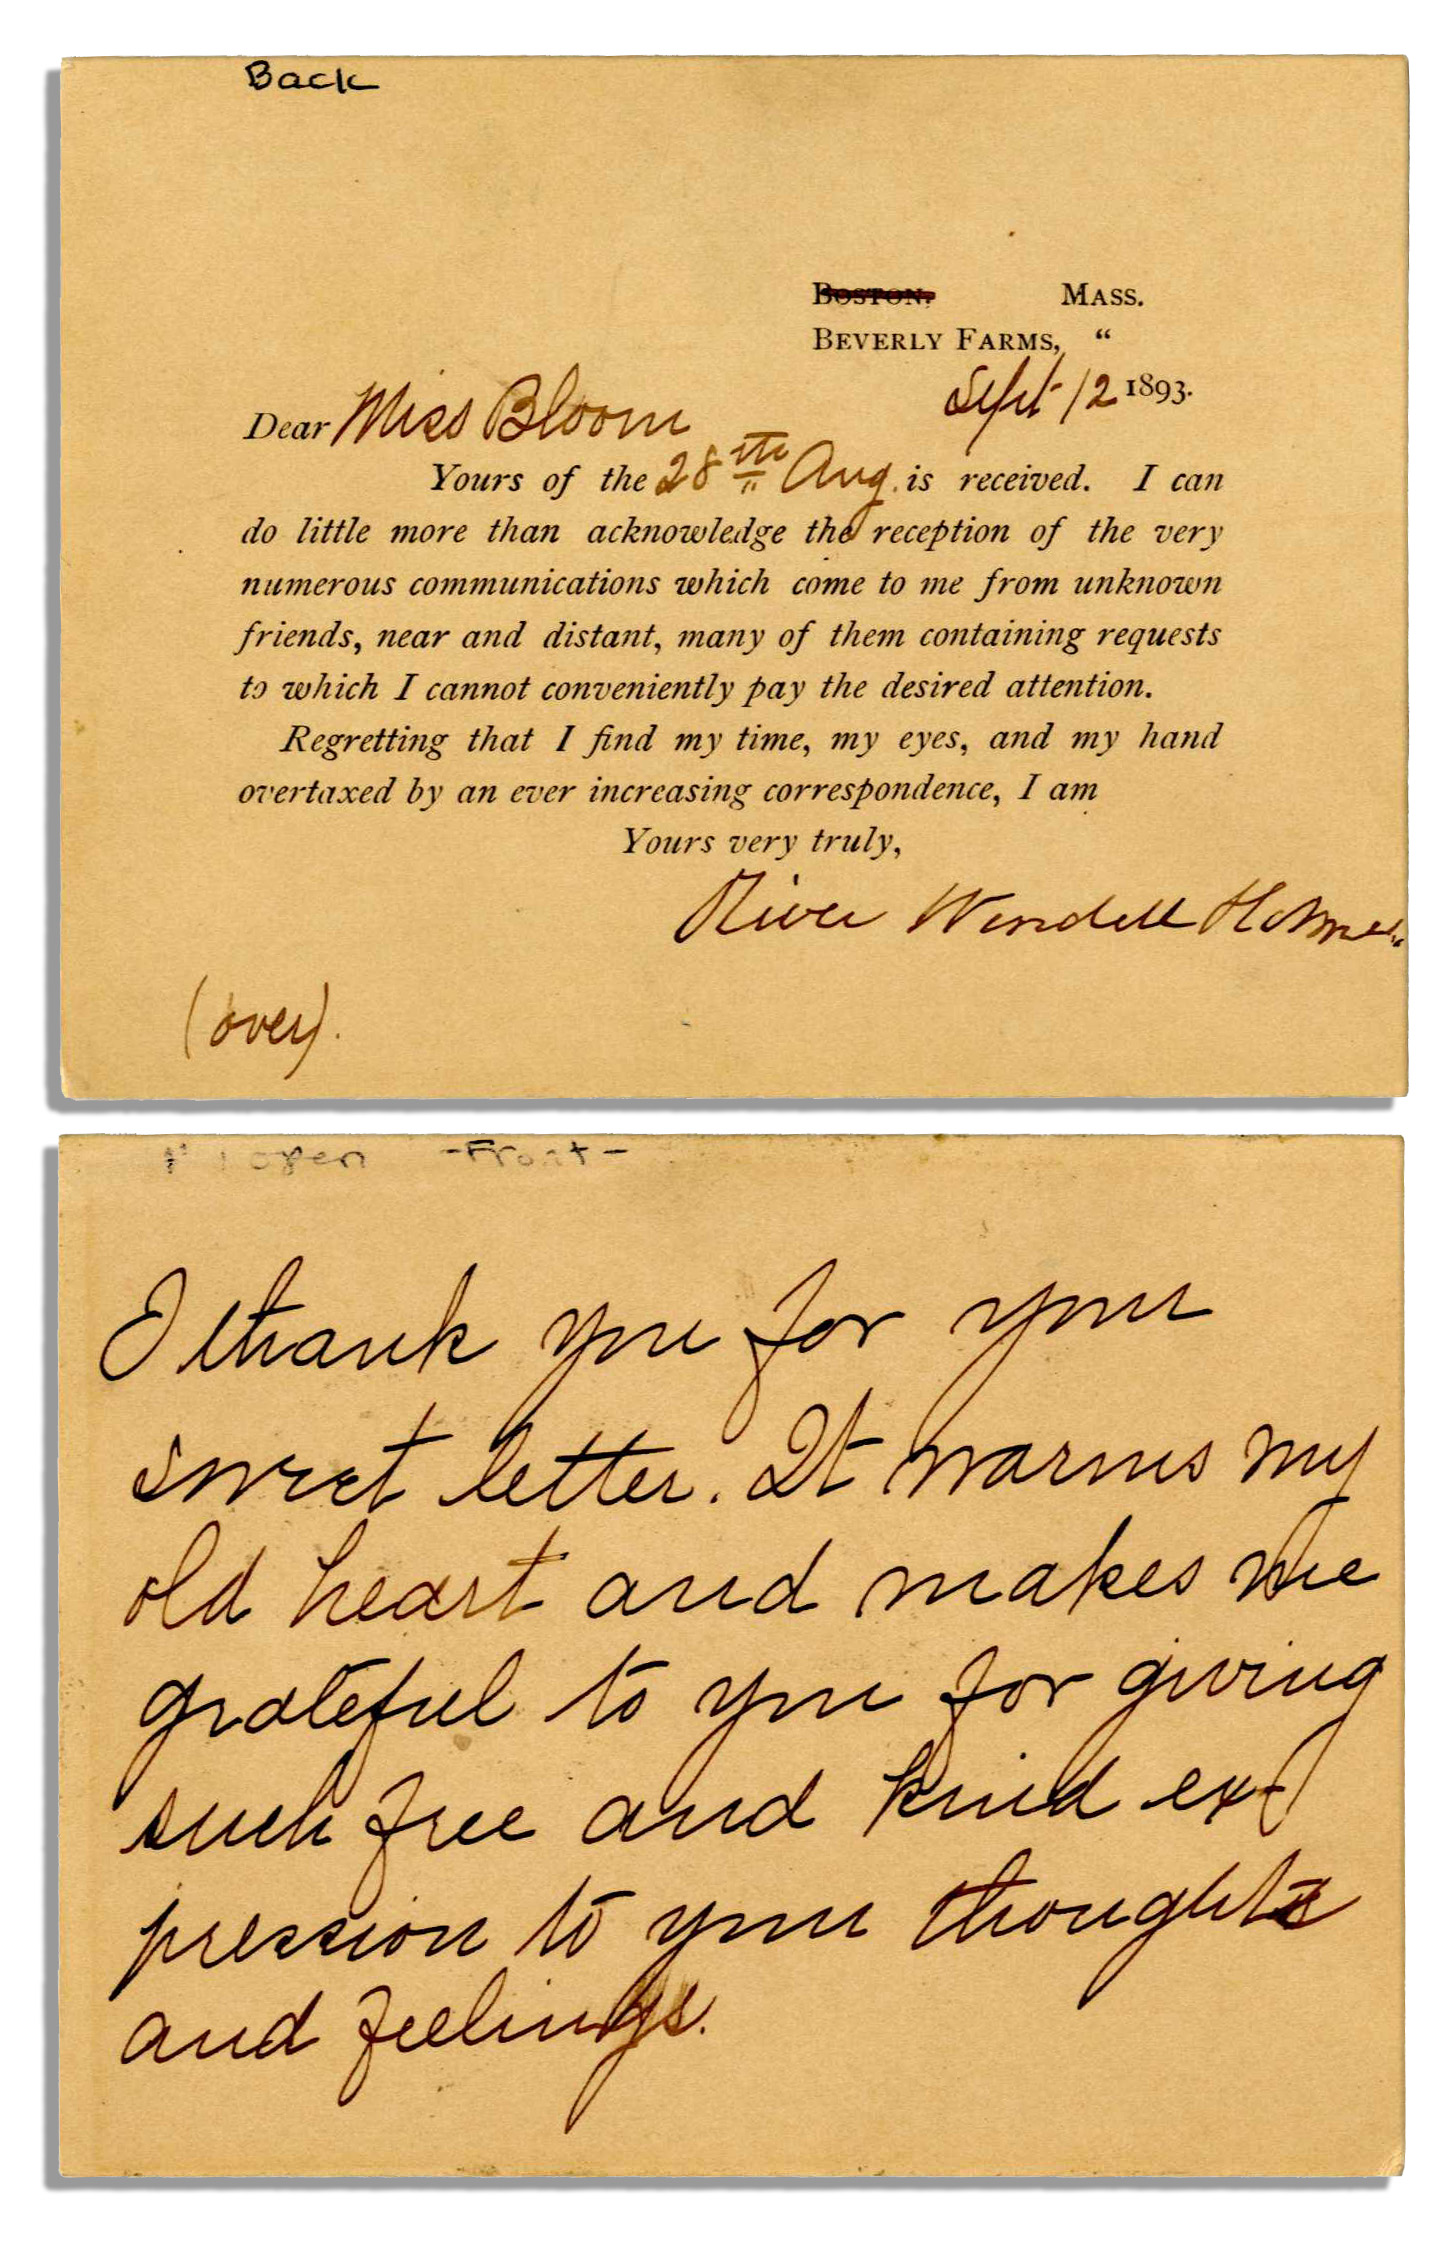 Back
Boston. Mass.
Beverly Farms, "
Sept 12 1893.
Dear Miss Bloom
Yours of the 28th Aug. is received. I can
do little more than acknowledge the reception of the very
numerous communications which come to me from unknown
friends, near and distant, many of them containing requests
to which I cannot conveniently pay the desired attention.
Regretting that I find my time, my eyes, and my hand
overtaxed by an ever increasing correspondence, I am
Yours very truly,
Oliver Wendell Holmes.
(over).
open -Front-
I thank you for your
sweet letter. It warms my
old heart and makes me
grateful to you for giving
such free and kind ex-
pression to your thoughts
and feelings.